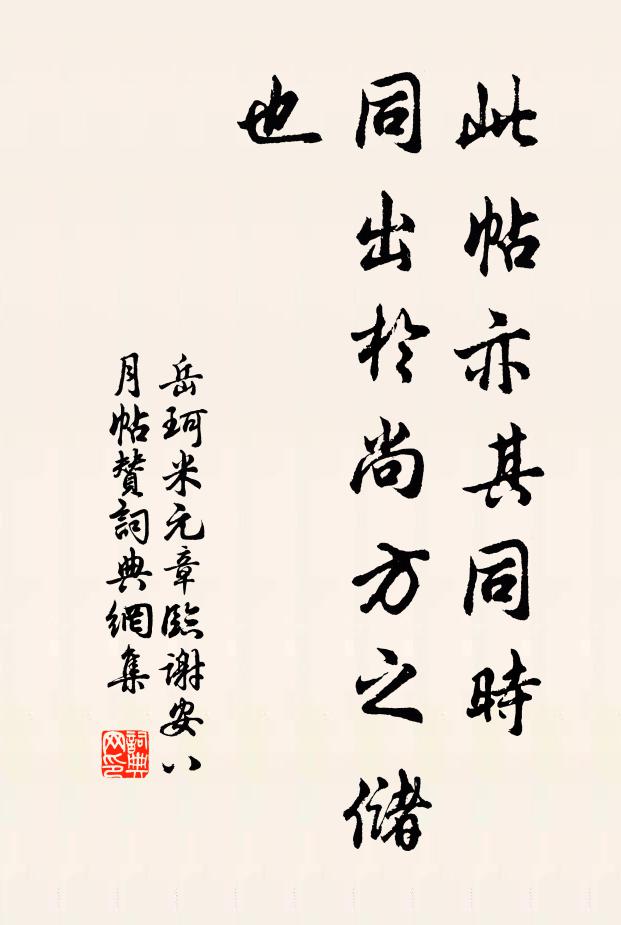 此帖亦其同時
同出於尚方之儲
也
岳珂米元章臨谢安八
月帖赞詞典網集
詞典
网印